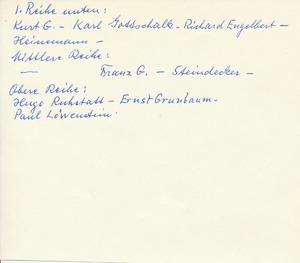 1. Reihe unten:
Kurt G. - Karl Gottschalk - Richard Engelbert -
Heinemann -
Mittlere Reihe:
— Franz G. - Steindecker -
Obere Reihe:
Hugo Ruhstatt - Ernst Grünbaum -
Paul Löwenstein.